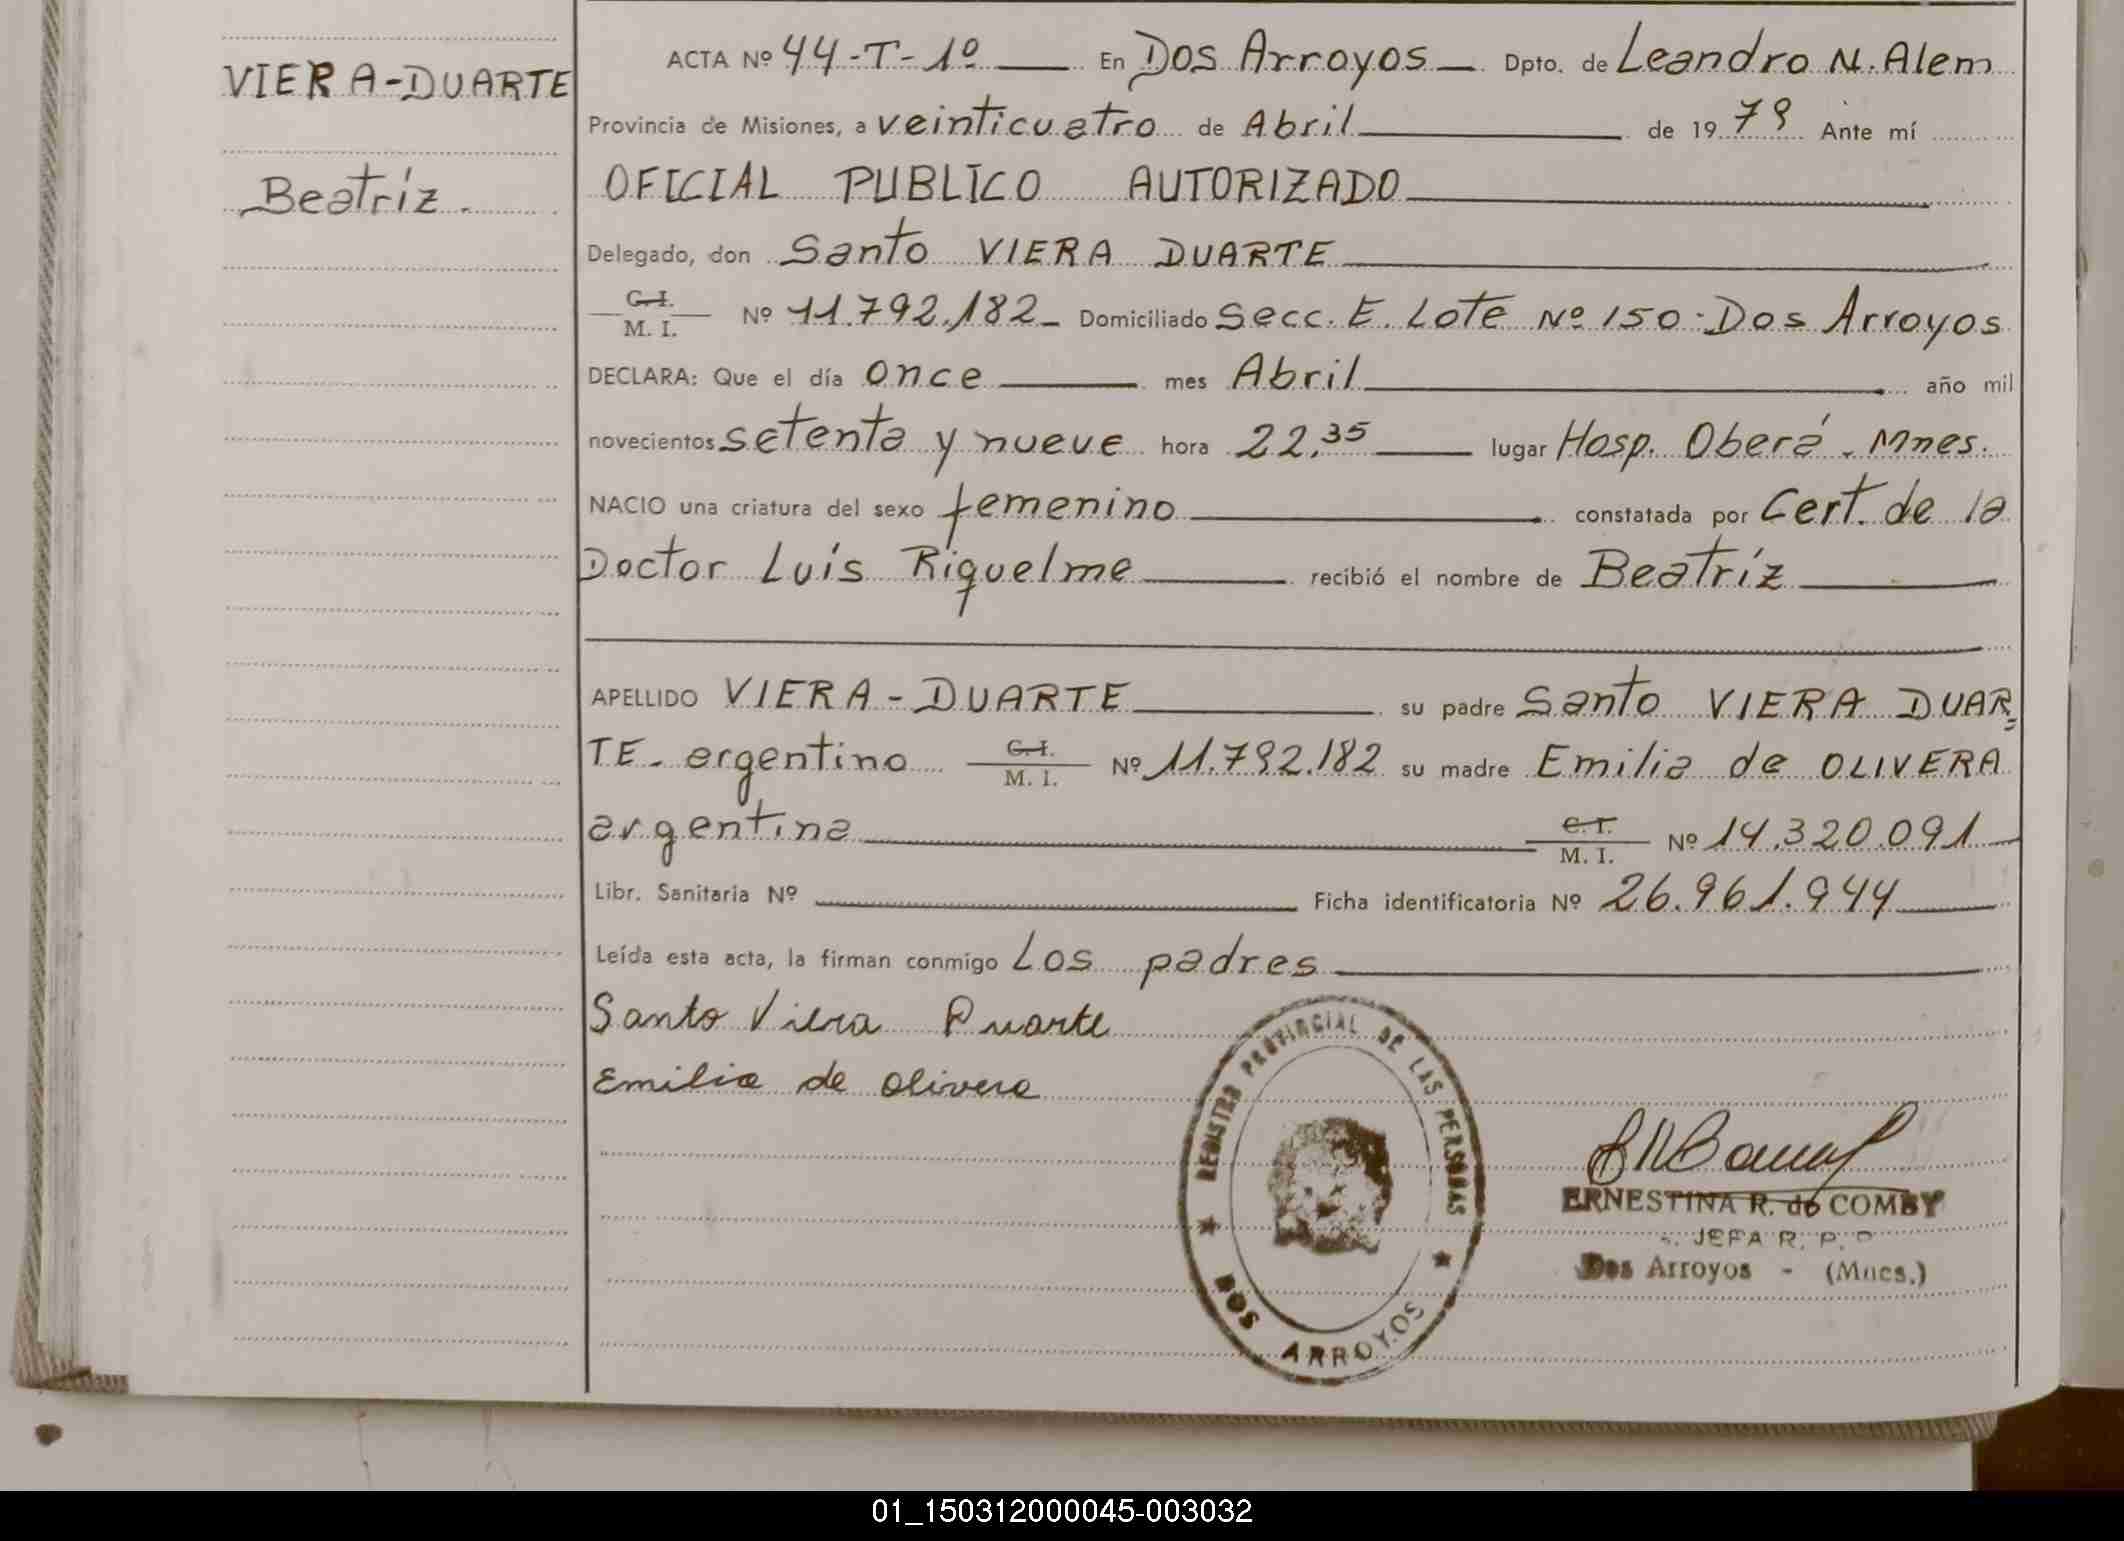 VIERA-DUARTE
Beatríz.
ACTA Nº 44-T-1º En Dos Arroyos Dpto. de Leandro N. Alem
Provincia de Misiones, a veinticuatro de Abril de 1979 Ante mí
OFICIAL PUBLICO AUTORIZADO
Delegado, don Santo VIERA DUARTE
C. I.
M. I. Nº 11.792.182 Domiciliado Secc. E. Lote Nº 150. Dos Arroyos
DECLARA: Que el día once mes Abril año mil
novecientos setenta y nueve hora 22,35 lugar Hosp. Oberá. Mnes.
NACIO una criatura del sexo femenino constatada por Cert. de la
Doctor Luís Riquelme recibió el nombre de Beatríz
APELLIDO VIERA-DUARTE su padre Santo VIERA DUAR=
TE. argentino C. I. M. I. Nº 11.792.182 su madre Emilia de OLIVERA
argentina C. I. M. I. Nº 14.320.091
Libr. Sanitaria Nº Ficha identificatoria Nº 26.961.944
Leída esta acta, la firman conmigo Los padres
Santo Viera Duarte
Emilia de olivera
REGISTRO PROVINCIAL DE LAS PERSONAS
DOS ARROYOS
ERNESTINA R. de COMBY
JEFA R. P. P
Dos Arroyos - (Mnes.)
01_150312000045-003032